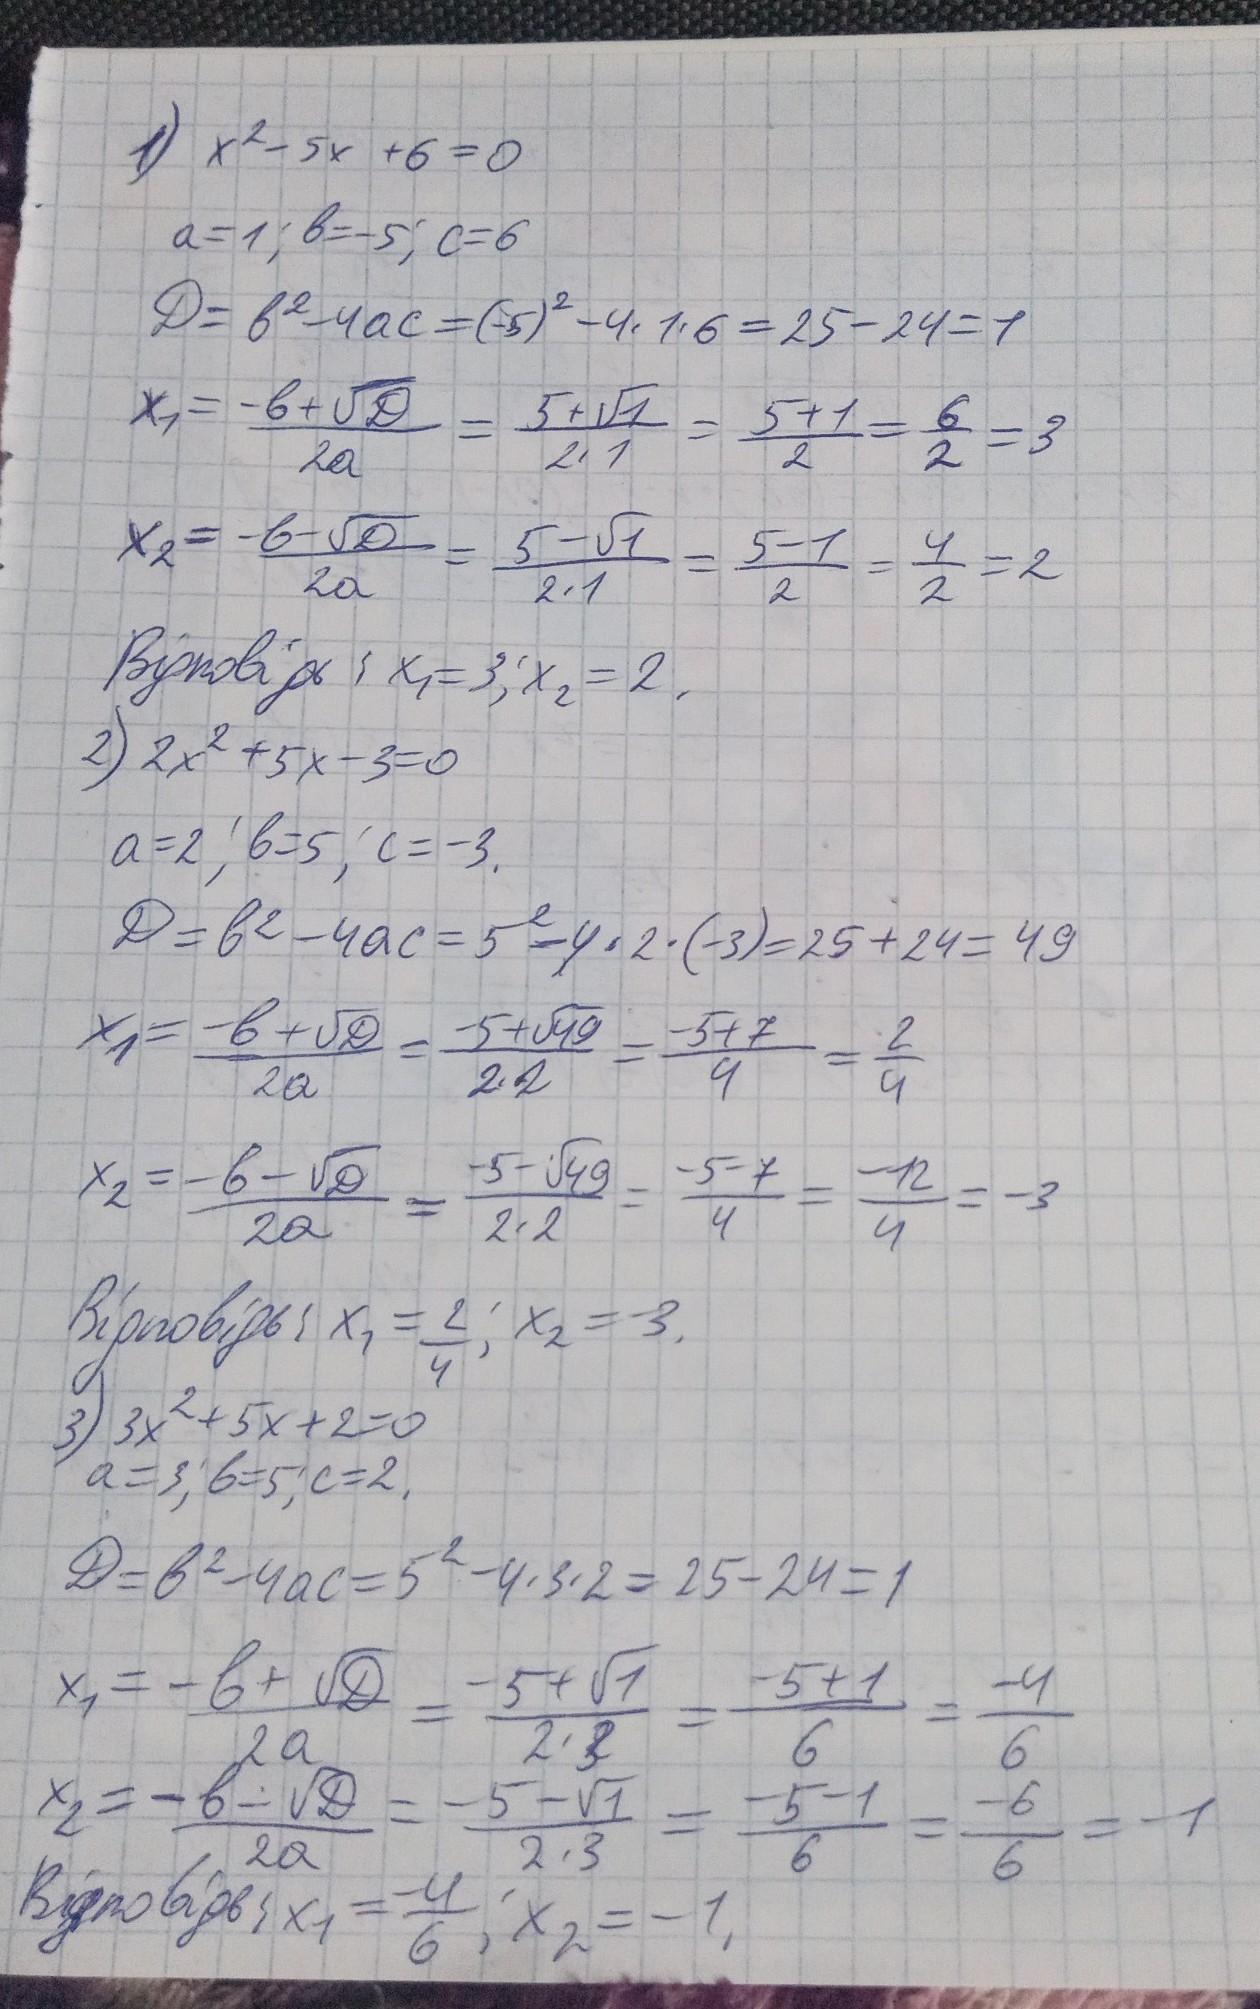 1) x² - 5x + 6 = 0
a=1; b=-5; c=6
D = b² - 4ac = (-5)² - 4·1·6 = 25 - 24 = 1
x₁ = (-b + √D)/2a = (5 + √1)/(2·1) = (5+1)/2 = 6/2 = 3
x₂ = (-b - √D)/2a = (5 - √1)/(2·1) = (5-1)/2 = 4/2 = 2
Відповідь: x₁ = 3; x₂ = 2.
2) 2x² + 5x - 3 = 0
a=2; b=5; c=-3.
D = b² - 4ac = 5² - 4·2·(-3) = 25 + 24 = 49
x₁ = (-b + √D)/2a = (-5 + √49)/(2·2) = (-5+7)/4 = 2/4
x₂ = (-b - √D)/2a = (-5 - √49)/(2·2) = (-5-7)/4 = -12/4 = -3
Відповідь: x₁ = 2/4; x₂ = -3.
3) 3x² + 5x + 2 = 0
a=3; b=5; c=2.
D = b² - 4ac = 5² - 4·3·2 = 25 - 24 = 1
x₁ = (-b + √D)/2a = (-5 + √1)/(2·3) = (-5+1)/6 = -4/6
x₂ = (-b - √D)/2a = (-5 - √1)/(2·3) = (-5-1)/6 = -6/6 = -1
Відповідь: x₁ = -4/6; x₂ = -1.